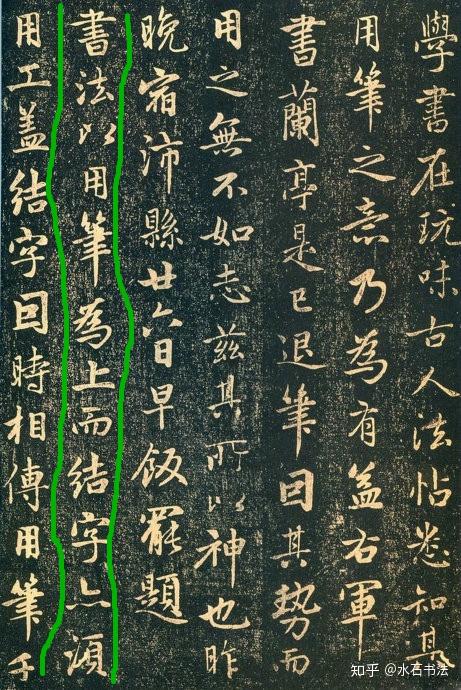 學書在玩味古人法帖悉知其
用筆之意乃為有益右軍
書蘭亭是已退筆因其勢而
用之無不如志茲其所以神也昨
晚宿沛縣廿六日早飯罷題
書法以用筆為上而結字亦須
用工盖結字因時相傳用筆千
知乎 @水石书法